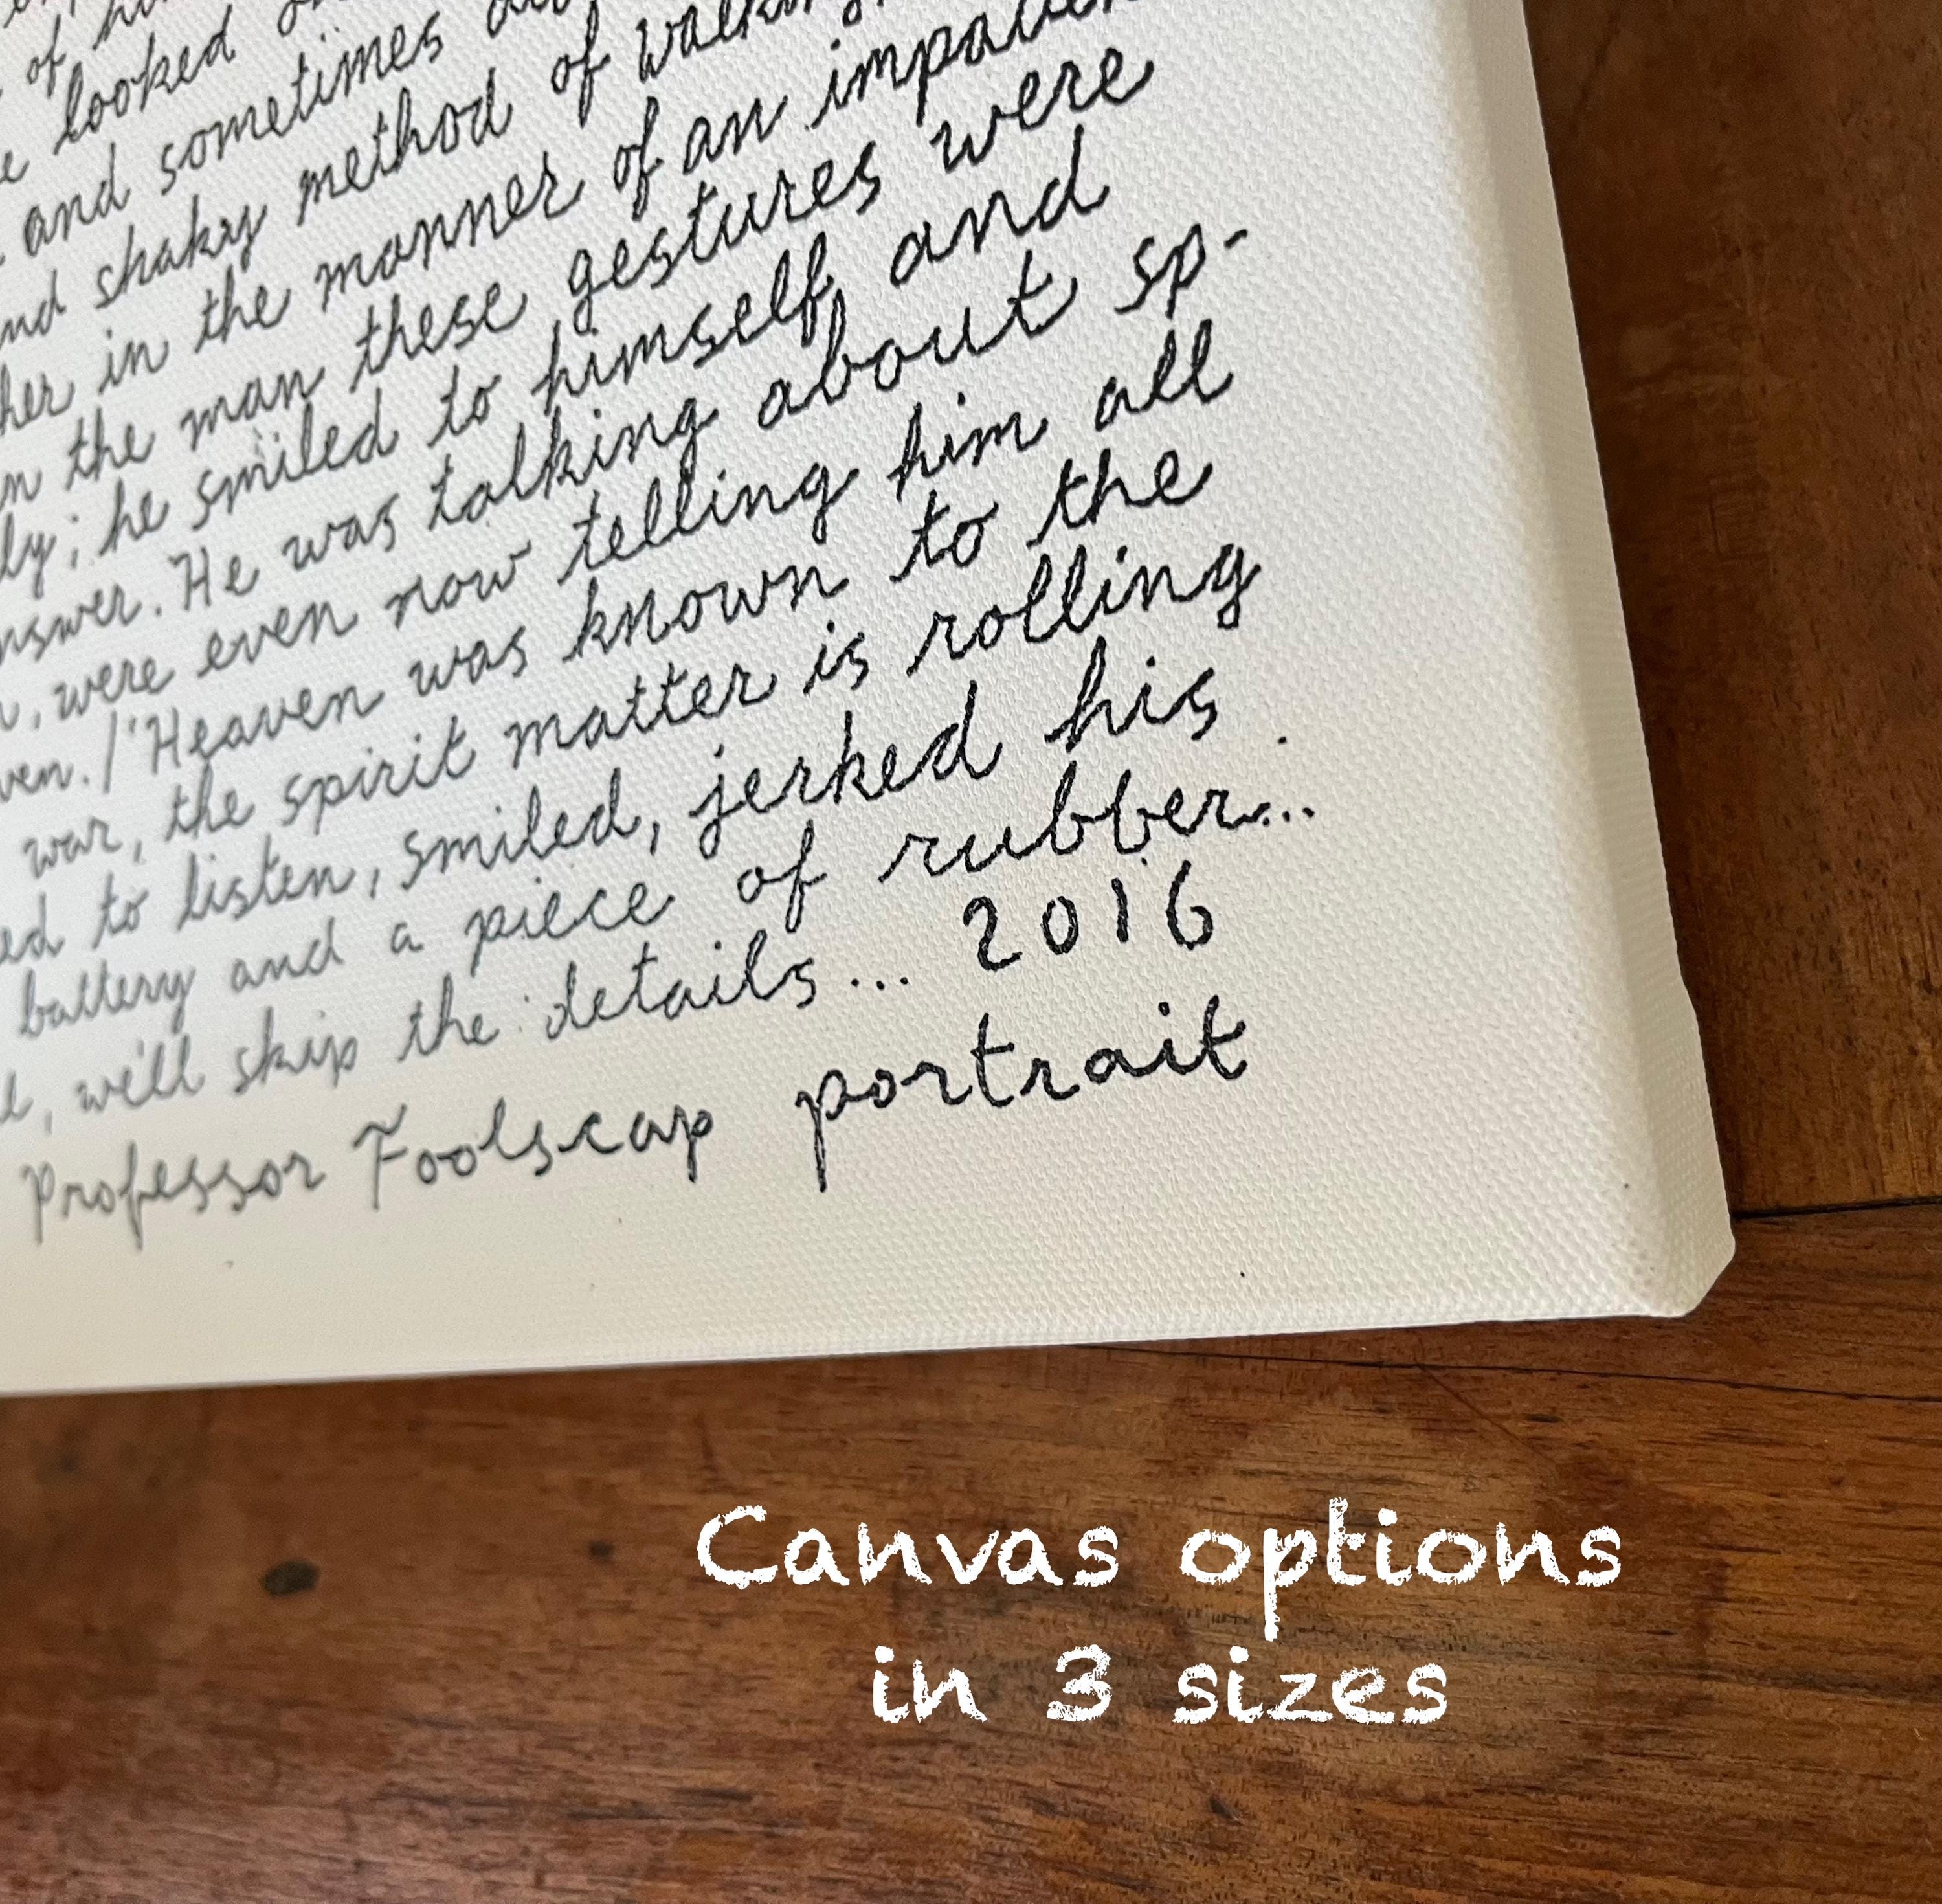 of
looked
and sometimes
shaky method of
her in the manner of an
n the man these gestures were
ly; he smiled to himself and
nswer. He was talking about sp-
n, were even now telling him all
ven. / "Heaven was known to the
war, the spirit matter is rolling
ed to listen, smiled, jerked his
battery and a piece of rubber...
l, we'll skip the details... 2016
Professor Foolscap portrait
Canvas options
in 3 sizes